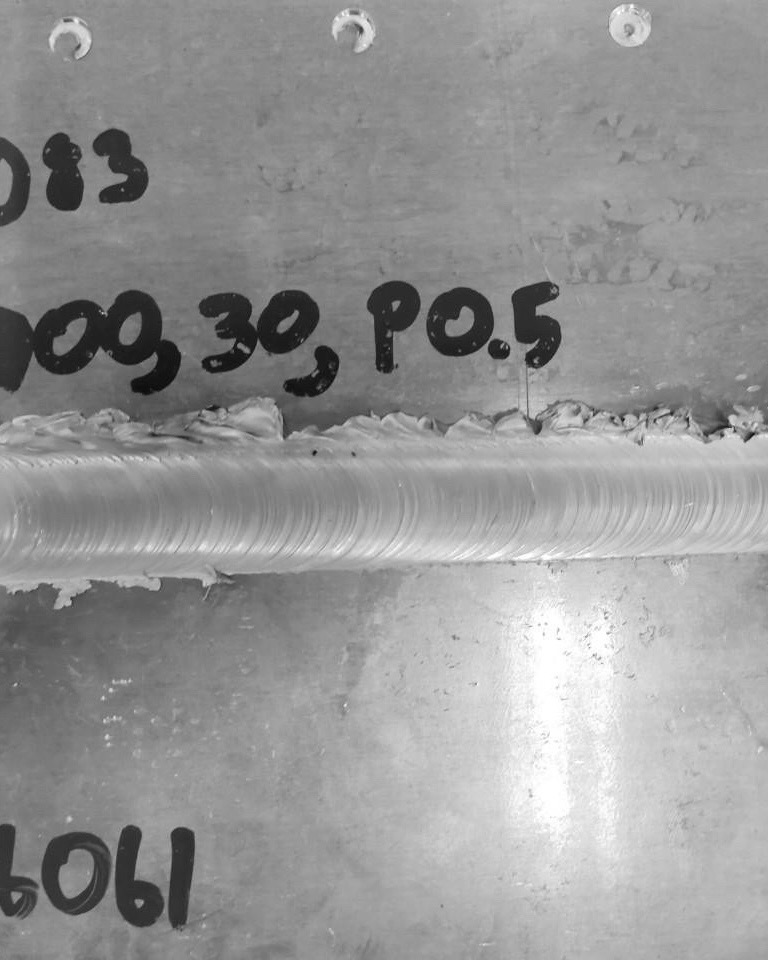 083
00, 30, P0.5
6061